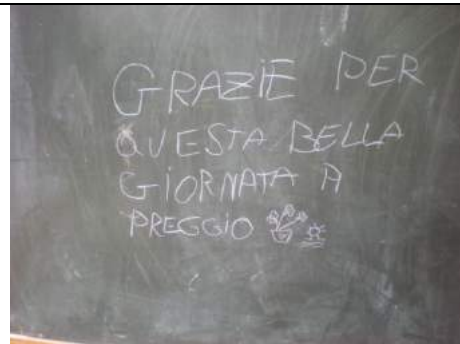 GRAZIE PER
QUESTA BELLA
GIORNATA A
PREGGIO